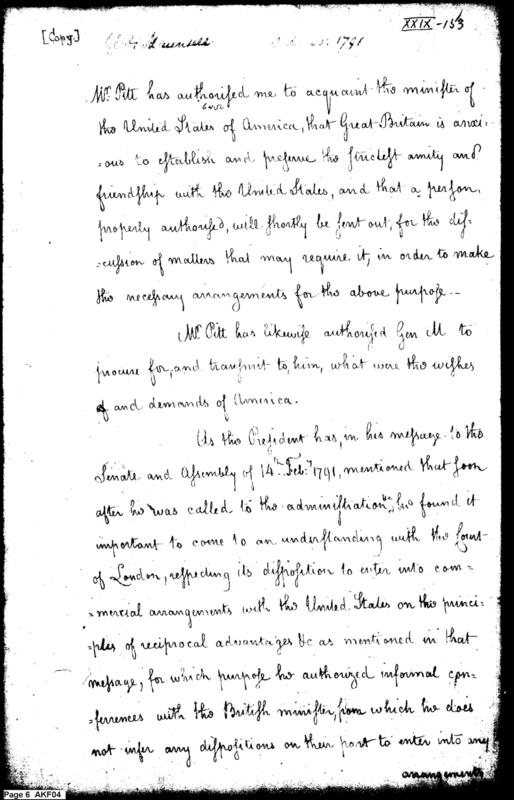 XXIX - 153
[Copy.] 1791
Mr. Pitt has authorised me to acquaint the minister of
the United States of America, that Great-Britain is anxi-
=ous to establish and preserve the strictest amity and
friendship with the United States, and that a person,
properly authorised, will shortly be sent out, for the dis-
=cussion of matters that may require it, in order to make
the necessary arrangements for the above purpose.-
Mr. Pitt has likewise authorised Gen M to
procure for, and transmit to, him, what were the wishes
and demands of America.
As the President has, in his message to the
Senate and Assembly of 14th Feb.y 1791, mentioned that soon
after he was called to the administration &c, he found it
important to come to an understanding with the Court
of London, respecting its disposition to enter into com=
=mercial arrangements with the United States on the princi-
=ples of reciprocal advantages &c as mentioned in that
message, for which purpose he authorized informal con=
=ferrences with the British minister, from which he does
not infer any dispositions on their part to enter into any
arrangements
Page 6 AKF04